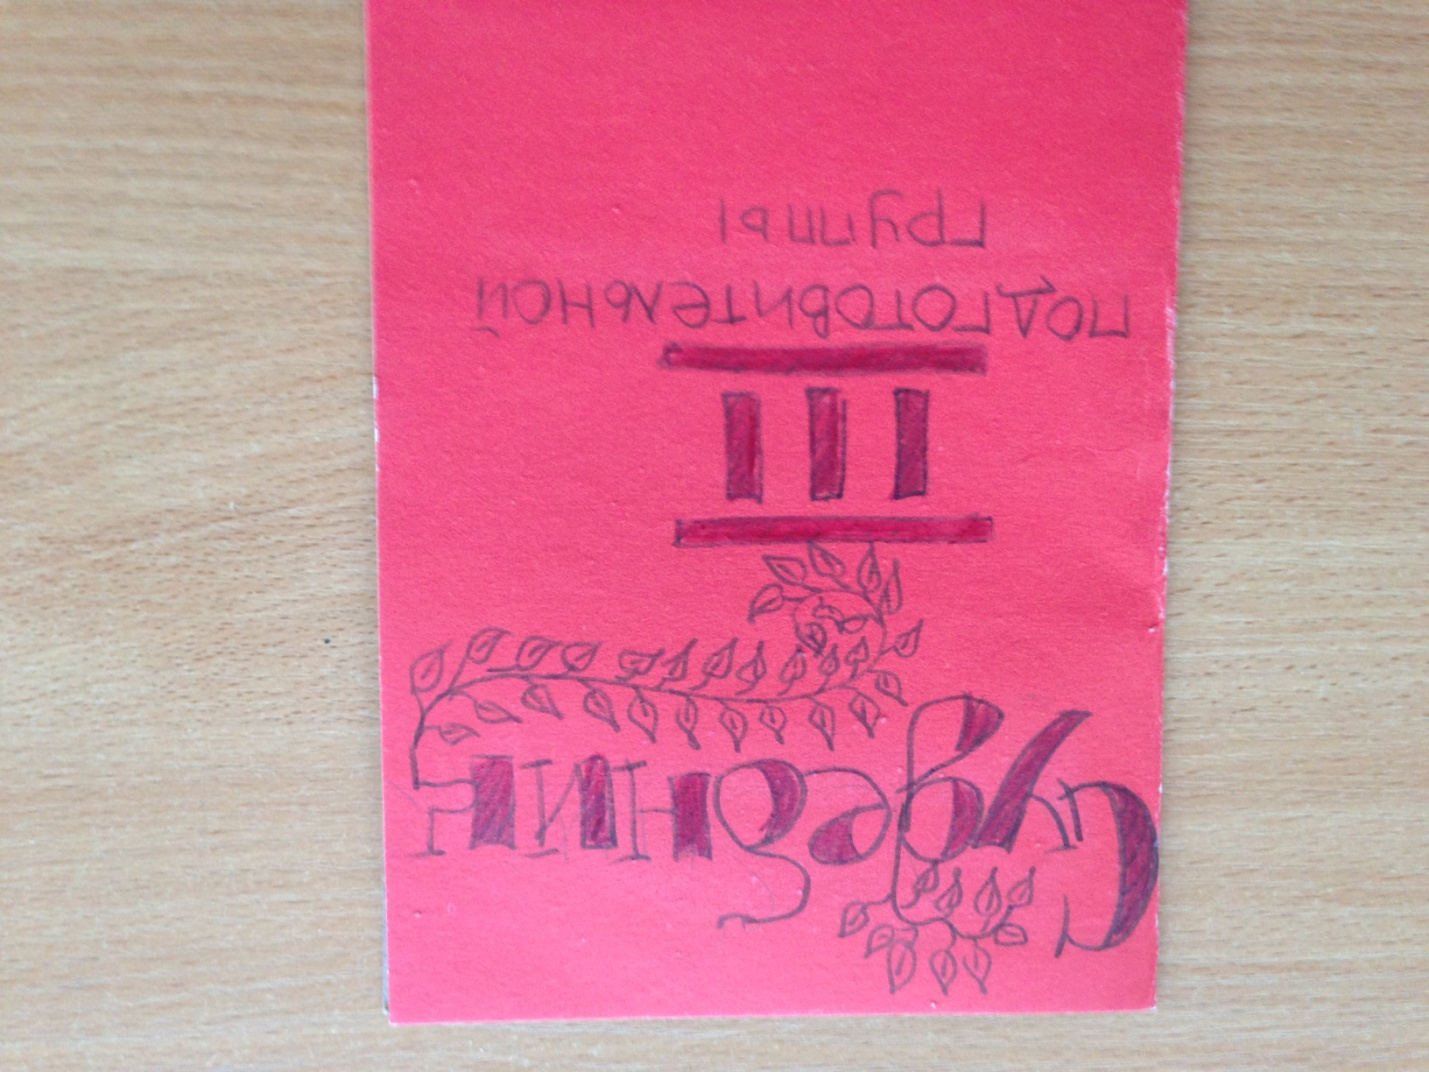 Судебник
III
ПОДГОТОВИТЕЛЬНОЙ
ГРУППЫ